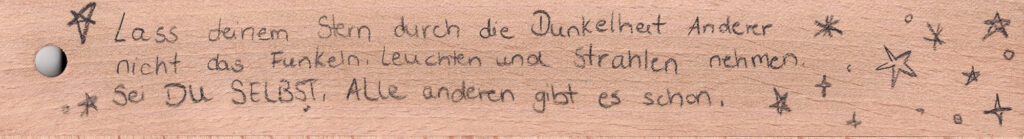 Lass deinem Stern durch die Dunkelheit Anderer
nicht das Funkeln, Leuchten und Strahlen nehmen.
Sei DU SELBST. Alle anderen gibt es schon.